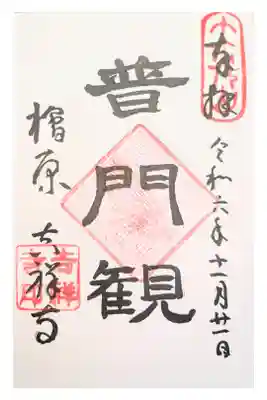 奉拝
令和六年十一月廿一日
普門観
檜原 吉祥寺
吉祥寺印